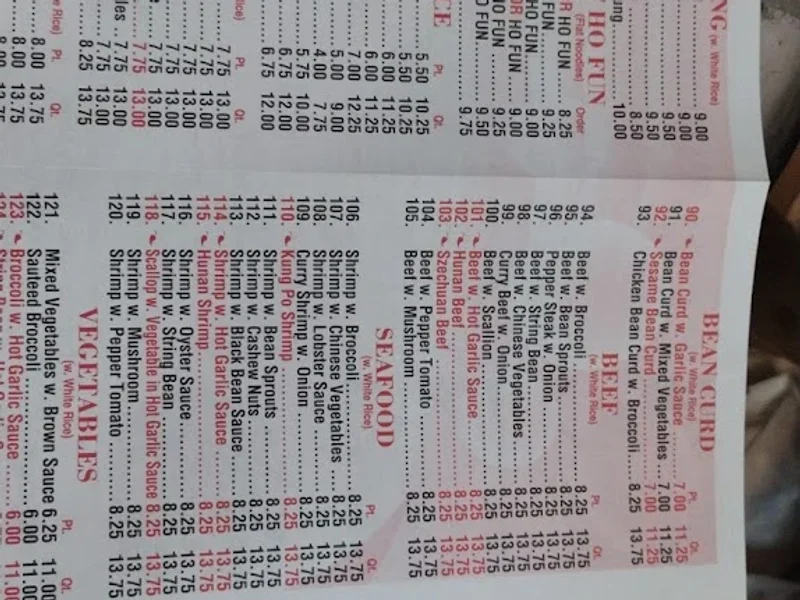 NG (w. White Rice)
9.00
9.00
9.50
9.50
8.50
10.00
HO FUN
(Flat Noodles) Order
R HO FUN 8.25
FUN 9.25
HO FUN 9.00
OR HO FUN 9.00
HO FUN 9.25
O FUN 9.50
9.75
CE
Pt. Qt.
5.50 10.25
5.50 10.25
6.00 11.25
6.00 11.25
7.00 12.25
5.00 9.00
4.00 7.75
5.75 10.00
6.75 12.00
6.75 12.00
Pt. Qt.
7.75 13.00
7.75 13.00
7.75 13.00
7.75 13.00
7.75 13.00
7.75 13.00
7.75 13.00
7.75 13.00
8.25 13.75
Rice) Pt. Qt.
8.00 13.75
8.00 13.75
BEAN CURD
(w. White Rice) Pt. Qt.
90. Bean Curd w. Garlic Sauce 7.00 11.25
91. Bean Curd w. Mixed Vegetables 7.00 11.25
92. Sesame Bean Curd 7.00 11.25
93. Chicken Bean Curd w. Broccoli 8.25 13.75
BEEF
(w. White Rice) Pt. Qt.
94. Beef w. Broccoli 8.25 13.75
95. Beef w. Bean Sprouts 8.25 13.75
96. Pepper Steak w. Onion 8.25 13.75
97. Beef w. String Bean 8.25 13.75
98. Beef w. Chinese Vegetables 8.25 13.75
99. Curry Beef w. Onion 8.25 13.75
100. Beef w. Scallion 8.25 13.75
101. Beef w. Hot Garlic Sauce 8.25 13.75
102. Hunan Beef 8.25 13.75
103. Szechuan Beef 8.25 13.75
104. Beef w. Pepper Tomato 8.25 13.75
105. Beef w. Mushroom 8.25 13.75
SEAFOOD
(w. White Rice) Pt. Qt.
106. Shrimp w. Broccoli 8.25 13.75
107. Shrimp w. Chinese Vegetables 8.25 13.75
108. Shrimp w. Lobster Sauce 8.25 13.75
109. Curry Shrimp w. Onion 8.25 13.75
110. Kung Po Shrimp 8.25 13.75
111. Shrimp w. Bean Sprouts 8.25 13.75
112. Shrimp w. Cashew Nuts 8.25 13.75
113. Shrimp w. Black Bean Sauce 8.25 13.75
114. Shrimp w. Hot Garlic Sauce 8.25 13.75
115. Hunan Shrimp 8.25 13.75
116. Shrimp w. Oyster Sauce 8.25 13.75
117. Shrimp w. String Bean 8.25 13.75
118. Scallop w. Vegetable in Hot Garlic Sauce 8.25 13.75
119. Shrimp w. Mushroom 8.25 13.75
120. Shrimp w. Pepper Tomato 8.25 13.75
VEGETABLES
(w. White Rice) Pt. Qt.
121. Mixed Vegetables w. Brown Sauce 6.25 11.00
122. Sauteed Broccoli 6.00 11.00
123. Broccoli w. Hot Garlic Sauce 6.00 11.00